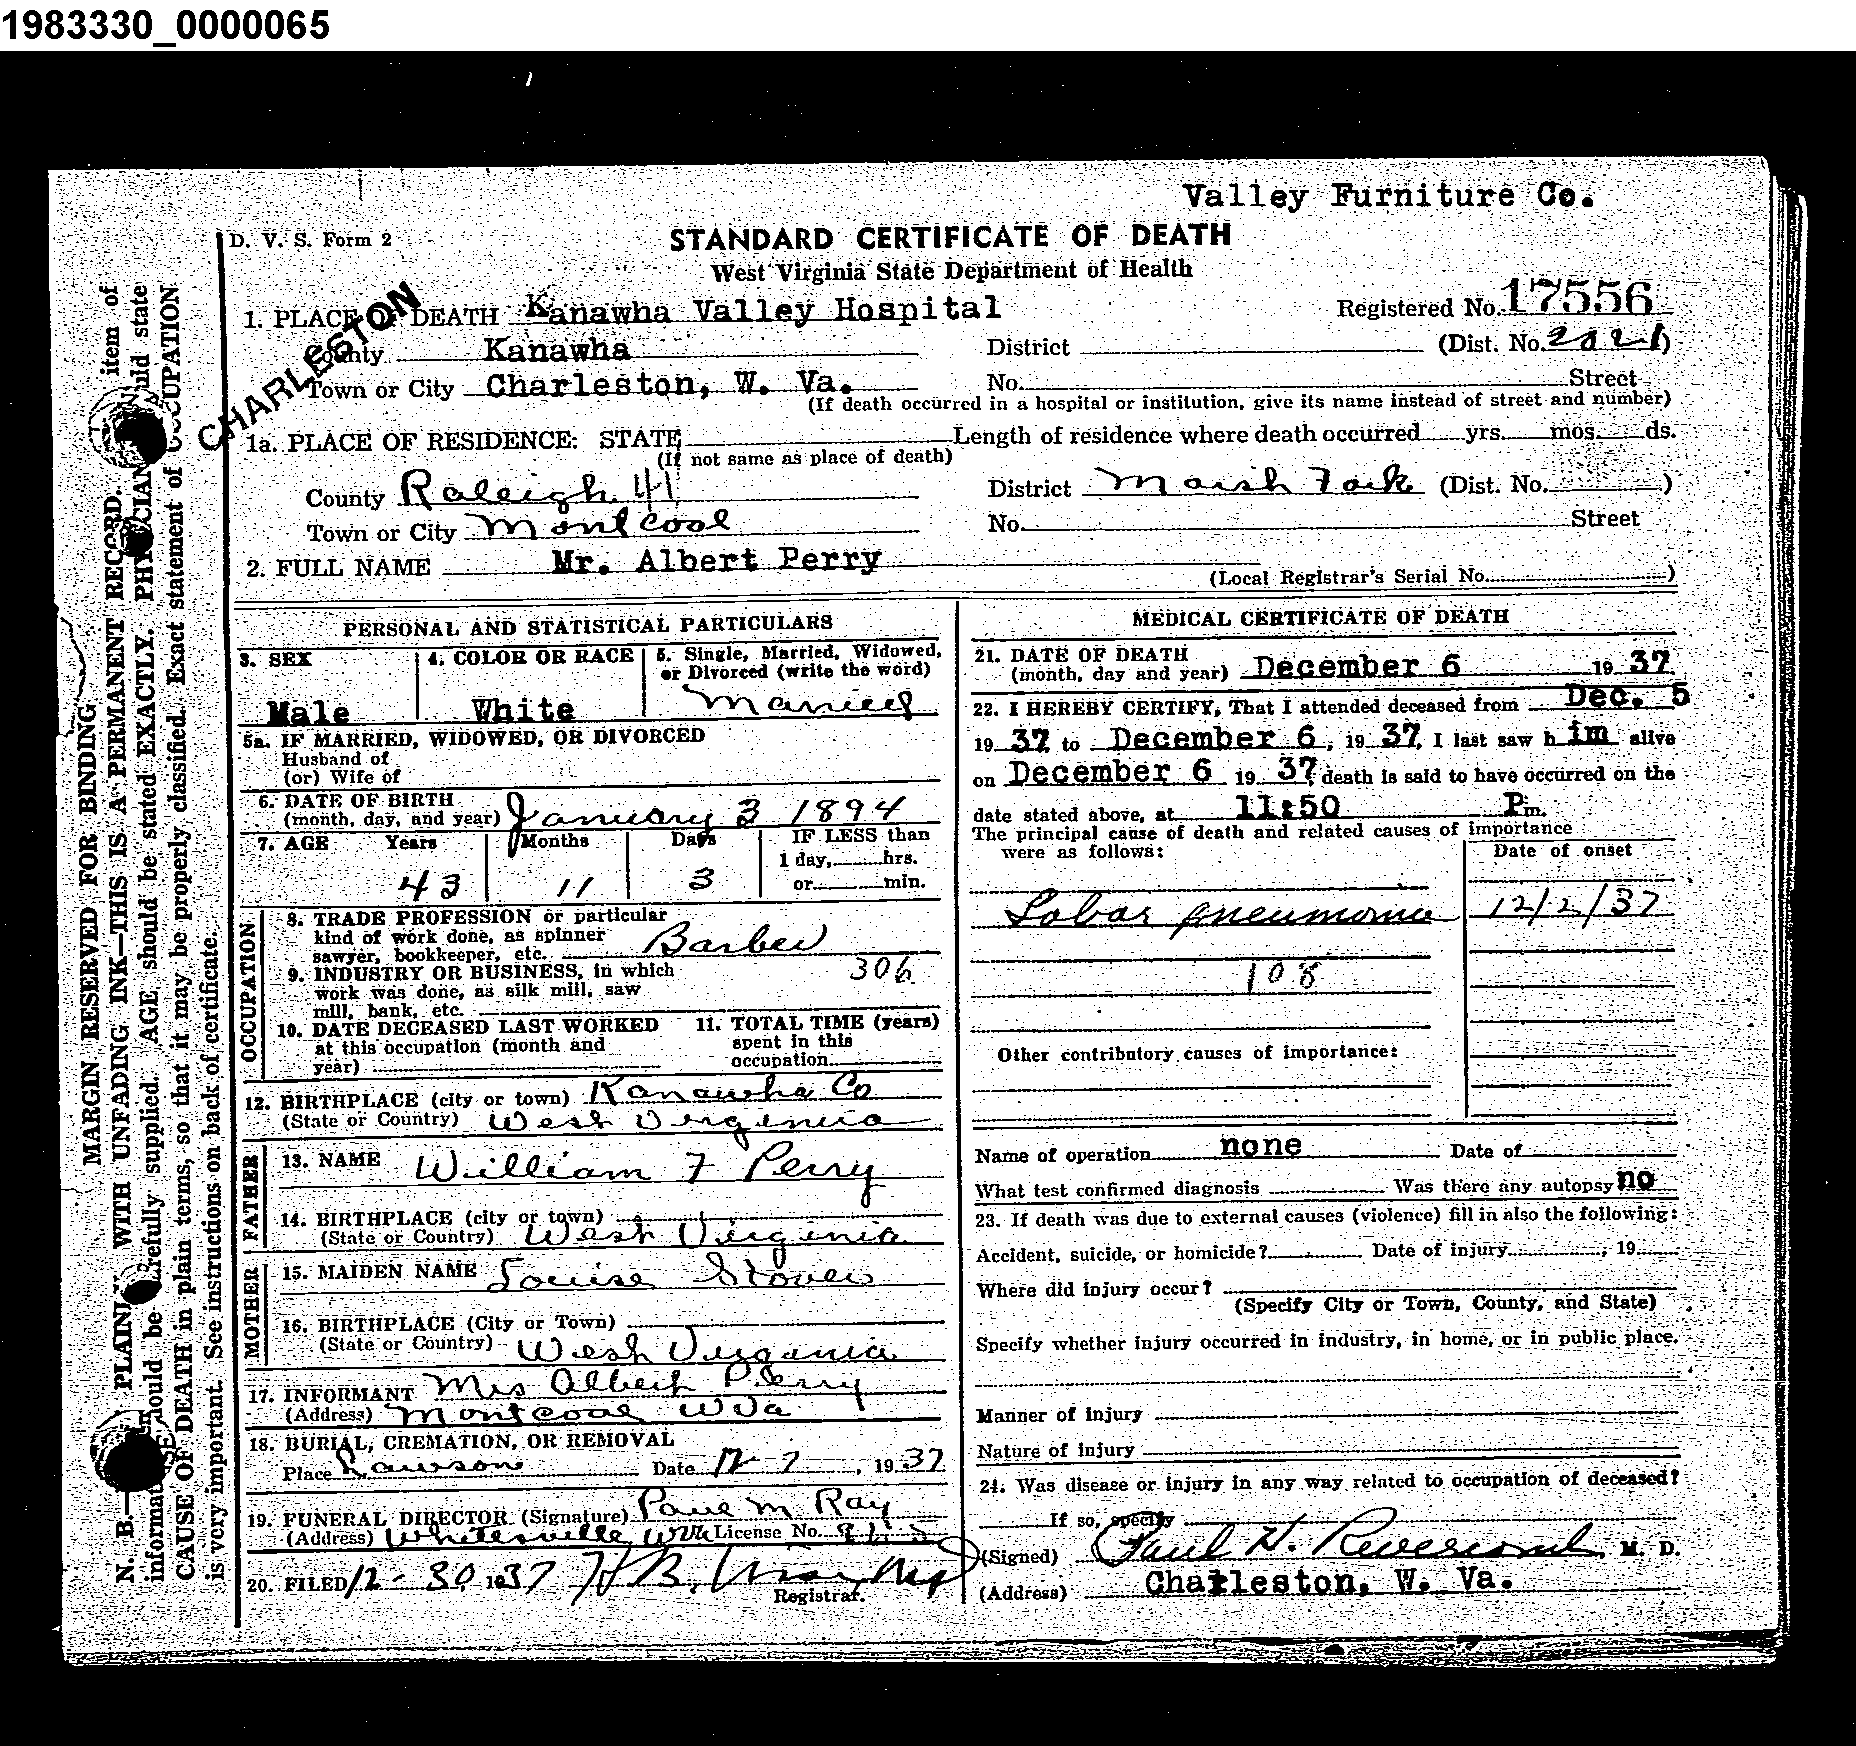 1983330_0000065
Valley Furniture Co.
D. V. S. Form 2
STANDARD CERTIFICATE OF DEATH
West Virginia State Department of Health
CHARLESTON
1. PLACE OF DEATH Kanawha Valley Hospital Registered No. 17556
County Kanawha District (Dist. No. 2021)
Town or City Charleston, W. Va. No. Street
(If death occurred in a hospital or institution, give its name instead of street and number)
1a. PLACE OF RESIDENCE: STATE Length of residence where death occurred yrs. mos. ds.
(If not same as place of death)
County Raleigh 41 District Marsh Fork (Dist. No. )
Town or City Montcoal No. Street
2. FULL NAME Mr. Albert Perry
(Local Registrar's Serial No. )
PERSONAL AND STATISTICAL PARTICULARS
3. SEX Male
4. COLOR OR RACE White
5. Single, Married, Widowed,
or Divorced (write the word)
Married
5a. IF MARRIED, WIDOWED, OR DIVORCED
Husband of
(or) Wife of
6. DATE OF BIRTH
(month, day, and year) January 3 1894
7. AGE Years Months Days IF LESS than
1 day, hrs.
43 11 3 or min.
OCCUPATION
8. TRADE PROFESSION or particular
kind of work done, as spinner
sawyer, bookkeeper, etc. Barber
9. INDUSTRY OR BUSINESS, in which 306
work was done, as silk mill, saw
mill, bank, etc.
10. DATE DECEASED LAST WORKED
at this occupation (month and
year)
11. TOTAL TIME (years)
spent in this
occupation
12. BIRTHPLACE (city or town) Kanawha Co
(State or Country) West Virginia
FATHER
13. NAME William F Perry
14. BIRTHPLACE (city or town)
(State or Country) West Virginia
MOTHER
15. MAIDEN NAME Louise Stover
16. BIRTHPLACE (City or Town)
(State or Country) West Virginia
17. INFORMANT Mrs Albert Perry
(Address) Montcoal W Va
18. BURIAL, CREMATION, OR REMOVAL
Place Lawson Date 12 7, 1937
19. FUNERAL DIRECTOR (Signature) Paul M Ray
(Address) Whitesville WVa License No.
20. FILED 12-30 1937 H B.
Registrar.
MEDICAL CERTIFICATE OF DEATH
21. DATE OF DEATH
(month, day and year) December 6 1937
22. I HEREBY CERTIFY, That I attended deceased from Dec. 5
1937 to December 6, 1937, I last saw him alive
on December 6 1937, death is said to have occurred on the
date stated above, at 11:50 Pm.
The principal cause of death and related causes of importance
were as follows:
Date of onset
Lobar pneumonia 12/2/37
108
Other contributory causes of importance:
Name of operation none Date of
What test confirmed diagnosis Was there any autopsy no
23. If death was due to external causes (violence) fill in also the following:
Accident, suicide, or homicide? Date of injury , 19
Where did injury occur?
(Specify City or Town, County, and State)
Specify whether injury occurred in industry, in home, or in public place.
Manner of injury
Nature of injury
24. Was disease or injury in any way related to occupation of deceased?
If so, specify
(Signed) Paul H. Revercomb, M. D.
(Address) Charleston, W. Va.
MARGIN RESERVED FOR BINDING
N. B.—PLAINLY WITH UNFADING INK—THIS IS A PERMANENT RECORD. item of
information should be carefully supplied. AGE should be stated EXACTLY. PHYSICIAN should state
CAUSE OF DEATH in plain terms, so that it may be properly classified. Exact statement of OCCUPATION
is very important. See instructions on back of certificate.